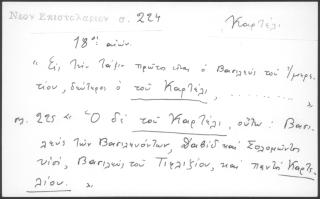 Νέον Επιστολάριον σ. 224
Καρτέλι
18ος αιών.
" Εις την Τάξιν πρώτος είναι ο Βασιλεύς του Ιμερε-
τίου, δεύτερος ο του Καρτέλι, . . . . . . . . "
σ. 225 " Ὁ δέ του Καρτέλι, ούτω: Βασι-
λεύς των Βασιλευόντων, Δαβίδ και Σολομώντος
υιός, Βασιλεύς του Τιφλιζίου, και παντός Καρτε-
λίου. "